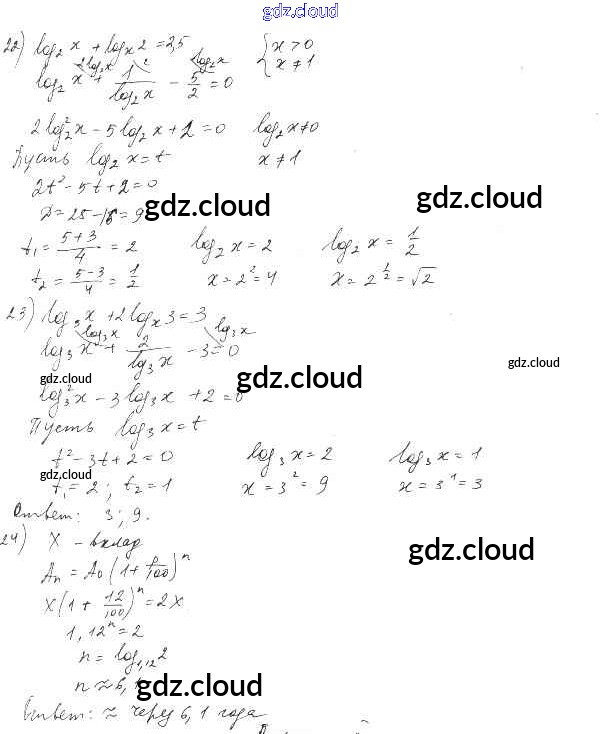 gdz.cloud
22) log₂ x + logₓ 2 = 2,5 { x > 0
x ≠ 1
log₂ x + 1/log₂ x − 5/2 = 0
2 log₂² x − 5 log₂ x + 2 = 0 log₂ x ≠ 0
Пусть log₂ x = t x ≠ 1
2t² − 5t + 2 = 0
D = 25 − 16 = 9
gdz.cloud gdz.cloud
t₁ = (5+3)/4 = 2 log₂ x = 2 log₂ x = 1/2
t₂ = (5−3)/4 = 1/2 x = 2² = 4 x = 2^(1/2) = √2
23) log₃ x + 2 logₓ 3 = 3
log₃ x + 2/log₃ x − 3 = 0
gdz.cloud gdz.cloud gdz.cloud
log₃² x − 3 log₃ x + 2 = 0
Пусть log₃ x = t
t² − 3t + 2 = 0 log₃ x = 2 log₃ x = 1
gdz.cloud
t₁ = 2; t₂ = 1 x = 3² = 9 x = 3¹ = 3
Ответ: 3; 9.
24) X – вклад
gdz.cloud
Aₙ = A₀(1 + p/100)ⁿ
X(1 + 12/100)ⁿ = 2X
1,12ⁿ = 2
n = log₁,₁₂ 2
n ≈ 6,1
gdz.cloud
Ответ: ≈ через 6,1 года